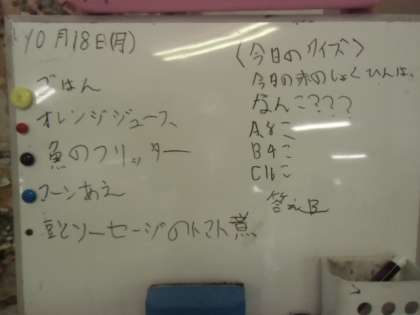 10月18日(月)
ごはん
オレンジジュース
魚のフリッター
コーンあえ
豆とソーセージのトマト煮
〈今日のクイズ〉
今日の赤のしょくひんは、
なんこ???
A 8こ
B 4こ
C 16こ
答え B